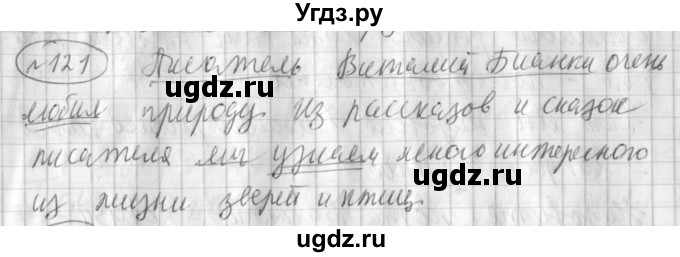 Угдз.ру
№121 Писатель Виталий Бианки очень
любил природу из рассказов и сказок
писателя мы узнаем много интересного
из жизни зверей и птиц.
ugdz.ru
ugdz.ru
ugdz.ru